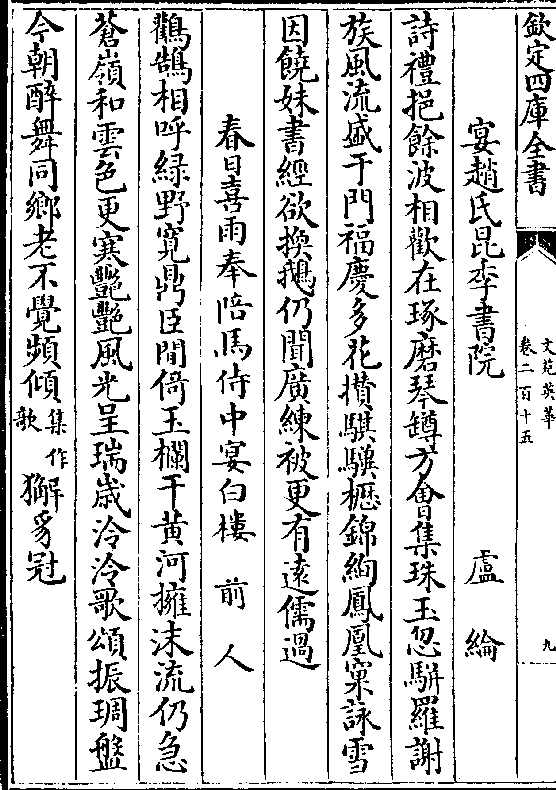 欽定四庫全書
文苑英華
卷二百十五
九
宴趙氏昆季書院 盧綸
詩禮挹餘波相歡在琢磨琴罇方會集珠玉忽駢羅謝
族風流盛于門福慶多花攅騏驥櫪錦絢鳳凰窠詠雪
因饒妹書經欲換鵝仍聞廣練被更有遠儒過
春日喜雨奉陪馬侍中宴白樓 前人
鸛鵠相呼緑野寛鼎臣閒倚玉欄干黄河擁沫流仍急
蒼嶺和雲色更寒艷艷風光呈瑞嵗泠泠歌頌振琱盤
今朝醉舞同鄉老不覺頻傾集作歌獬豸冠